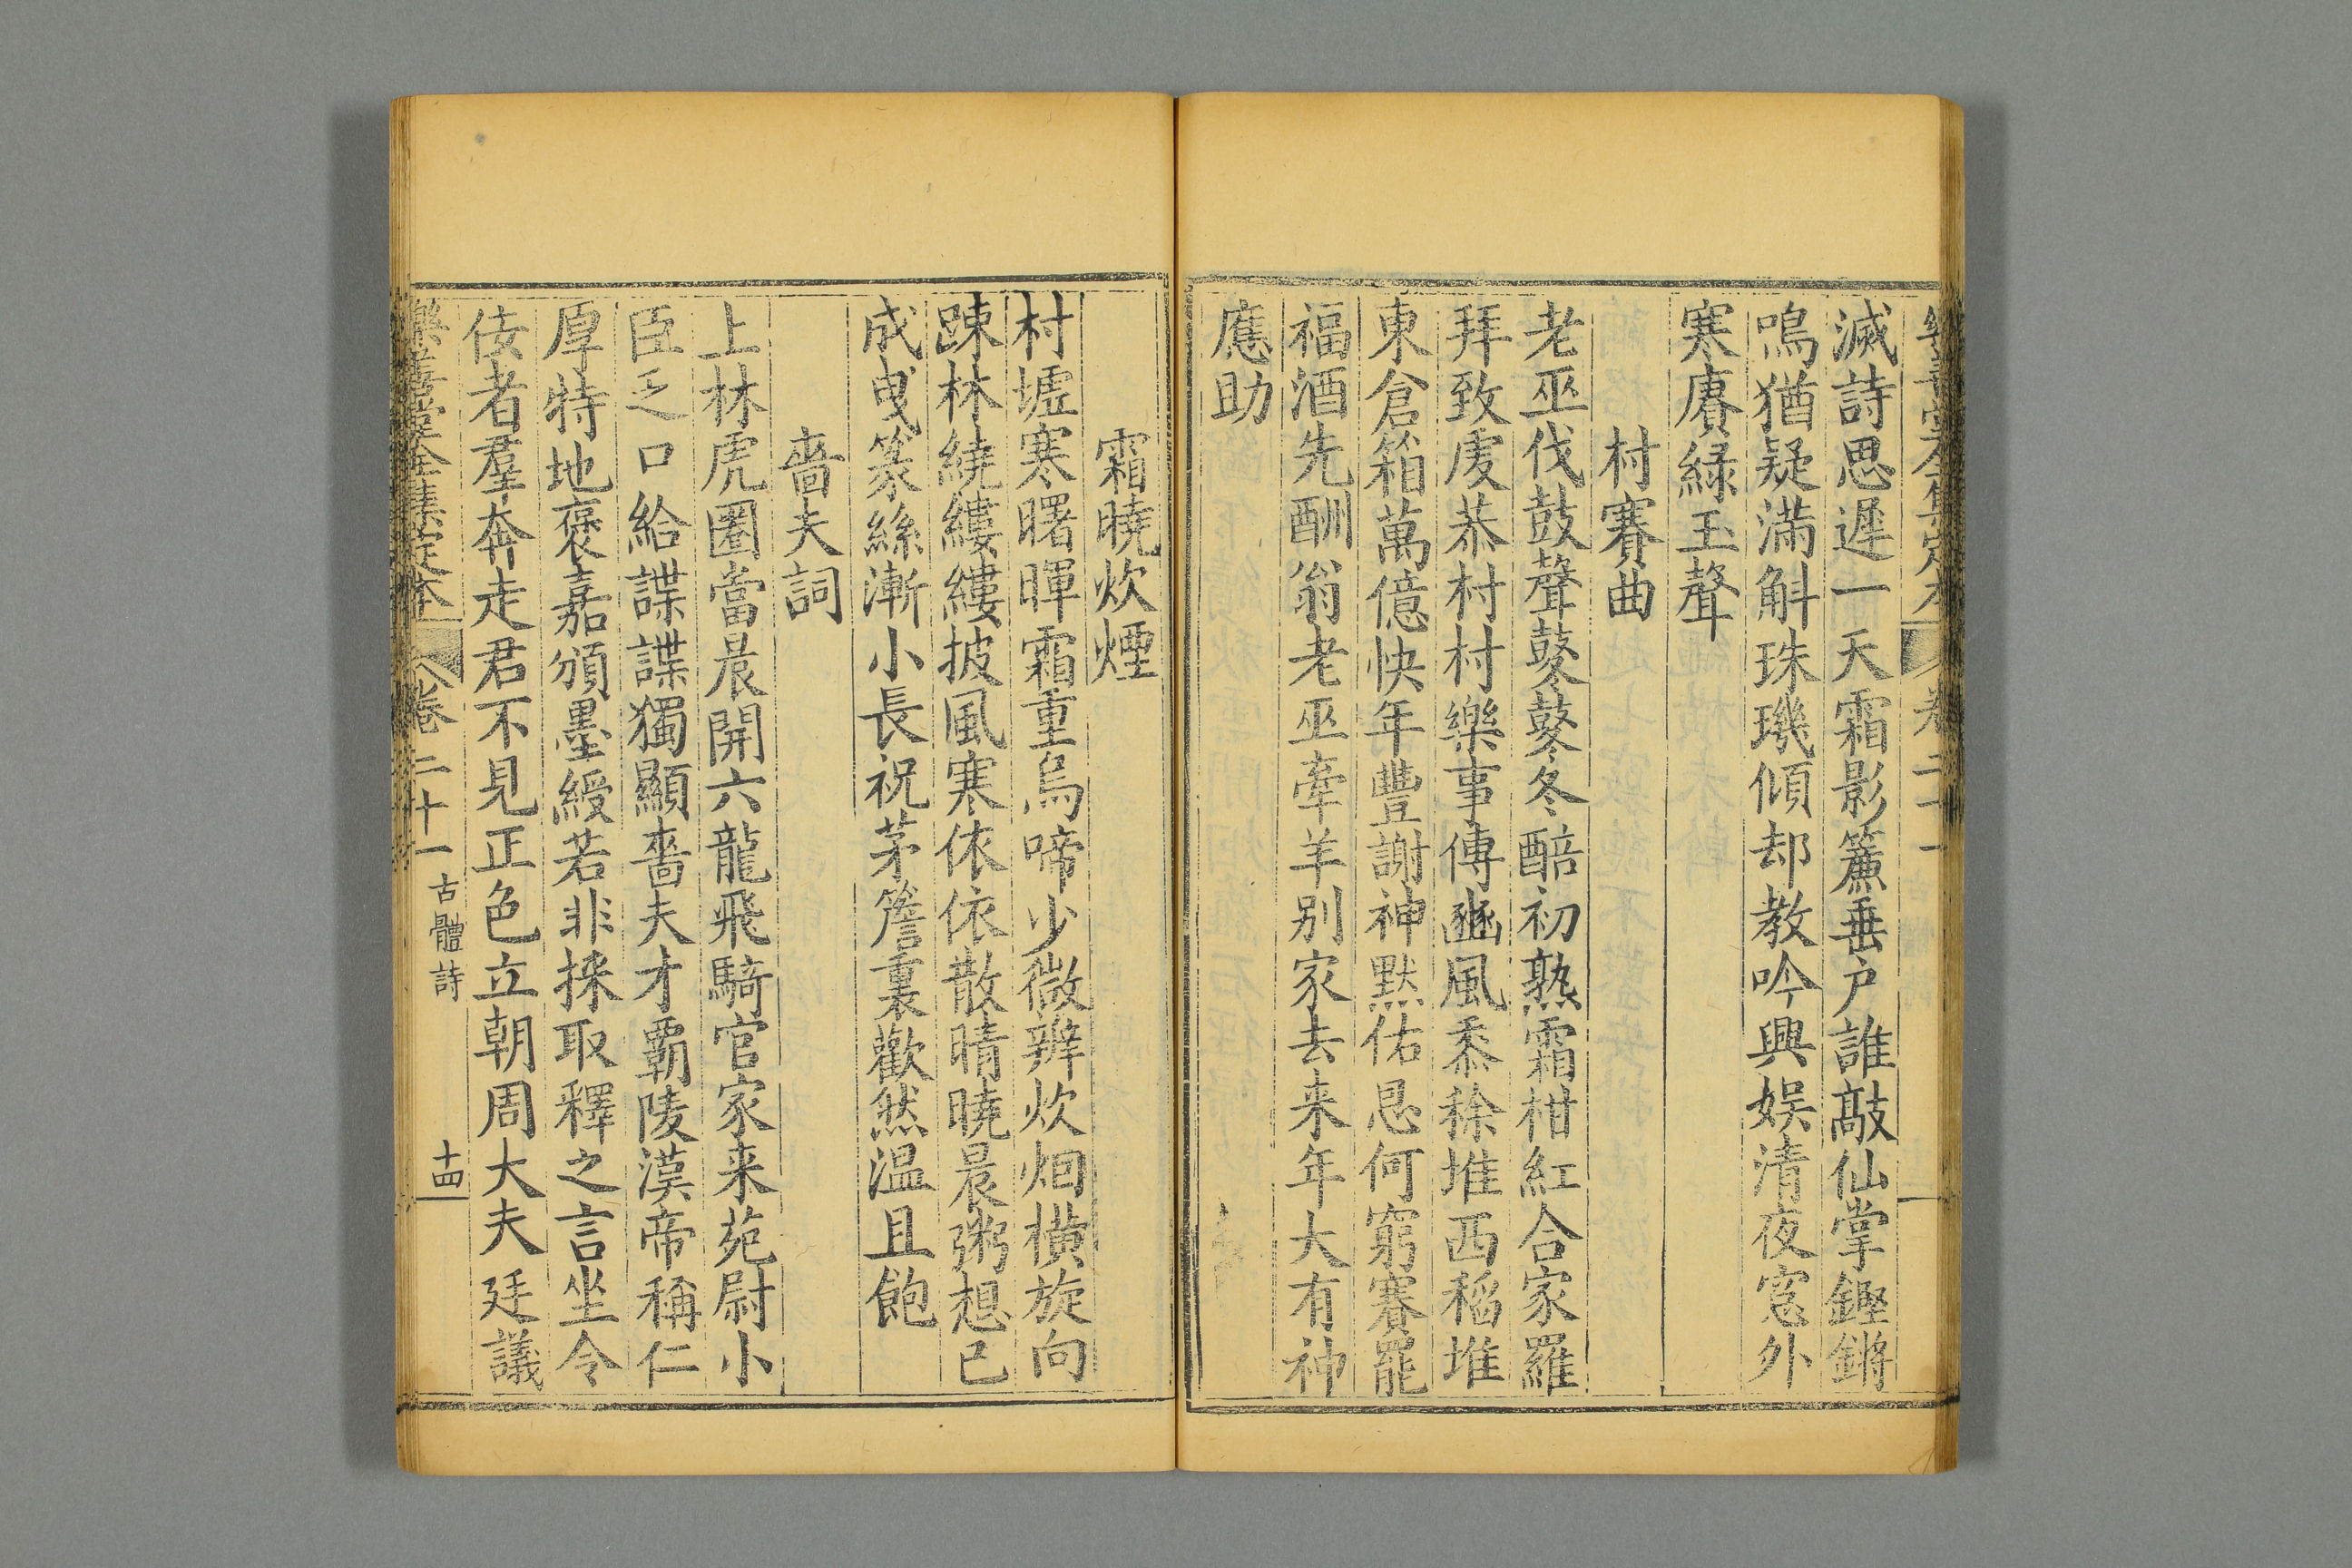 滅詩思遲一天霜影簾垂户誰敲仙掌鏗鏘
鳴猶疑滿斛珠璣傾却教吟興娱清夜窓外
寒賡緑玉聲
村賽曲
老巫伐鼓聲鼕鼕冬醅初熟霜柑紅合家羅
拜致虔恭村村樂事傳豳風黍稌堆西稻堆
東倉箱萬億快年豐謝神黙佑恩何窮賽罷
福酒先酬翁老巫牽羊别家去来年大有神
應助
霜曉炊煙
村墟寒曙暉霜重烏啼少微辨炊烟横旋向
踈林繞縷縷披風寒依依散晴曉晨粥想已
成曵篆絲漸小長祝茅簷裏歡然温且飽
嗇夫詞
上林虎圏當晨開六龍飛騎官家来苑尉小
臣乏口給諜諜獨顯嗇夫才覇陵漢帝稱仁
厚特地褒嘉頒墨綬若非採取釋之言坐令
佞者羣奔走君不見正色立朝周大夫廷議
樂善堂全集定本 卷二十一 古體詩 十四